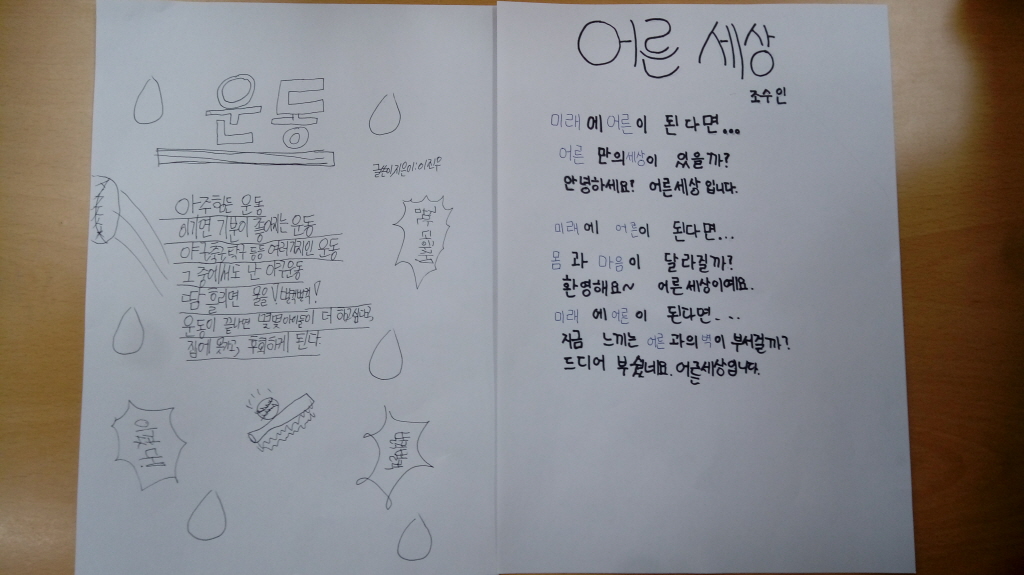 운동
글쓴이지은이:이진우
아주힘든 운동
이기면 기분이 좋아지는 운동
야구축구탁구 등등 여러가지인 운동
그 중에서도 난 야구운동
땀 흘리면 물을 벌컥벌컥!
운동이 끝나면 몇몇아이들이 더 하고싶다고,
집에 못가고, 후회하게 된다.
어른 세상
조수인
미래에 어른이 된다면...
어른 만의세상이 있을까?
안녕하세요! 어른세상 입니다.
미래에 어른이 된다면...
몸과 마음이 달라걸까?
환영해요~ 어른세상이예요.
미래에 어른이 된다면...
지금 느끼는 어른과의벽이 부서걸까?
드디어 부쉈네요. 어른세상입니다.